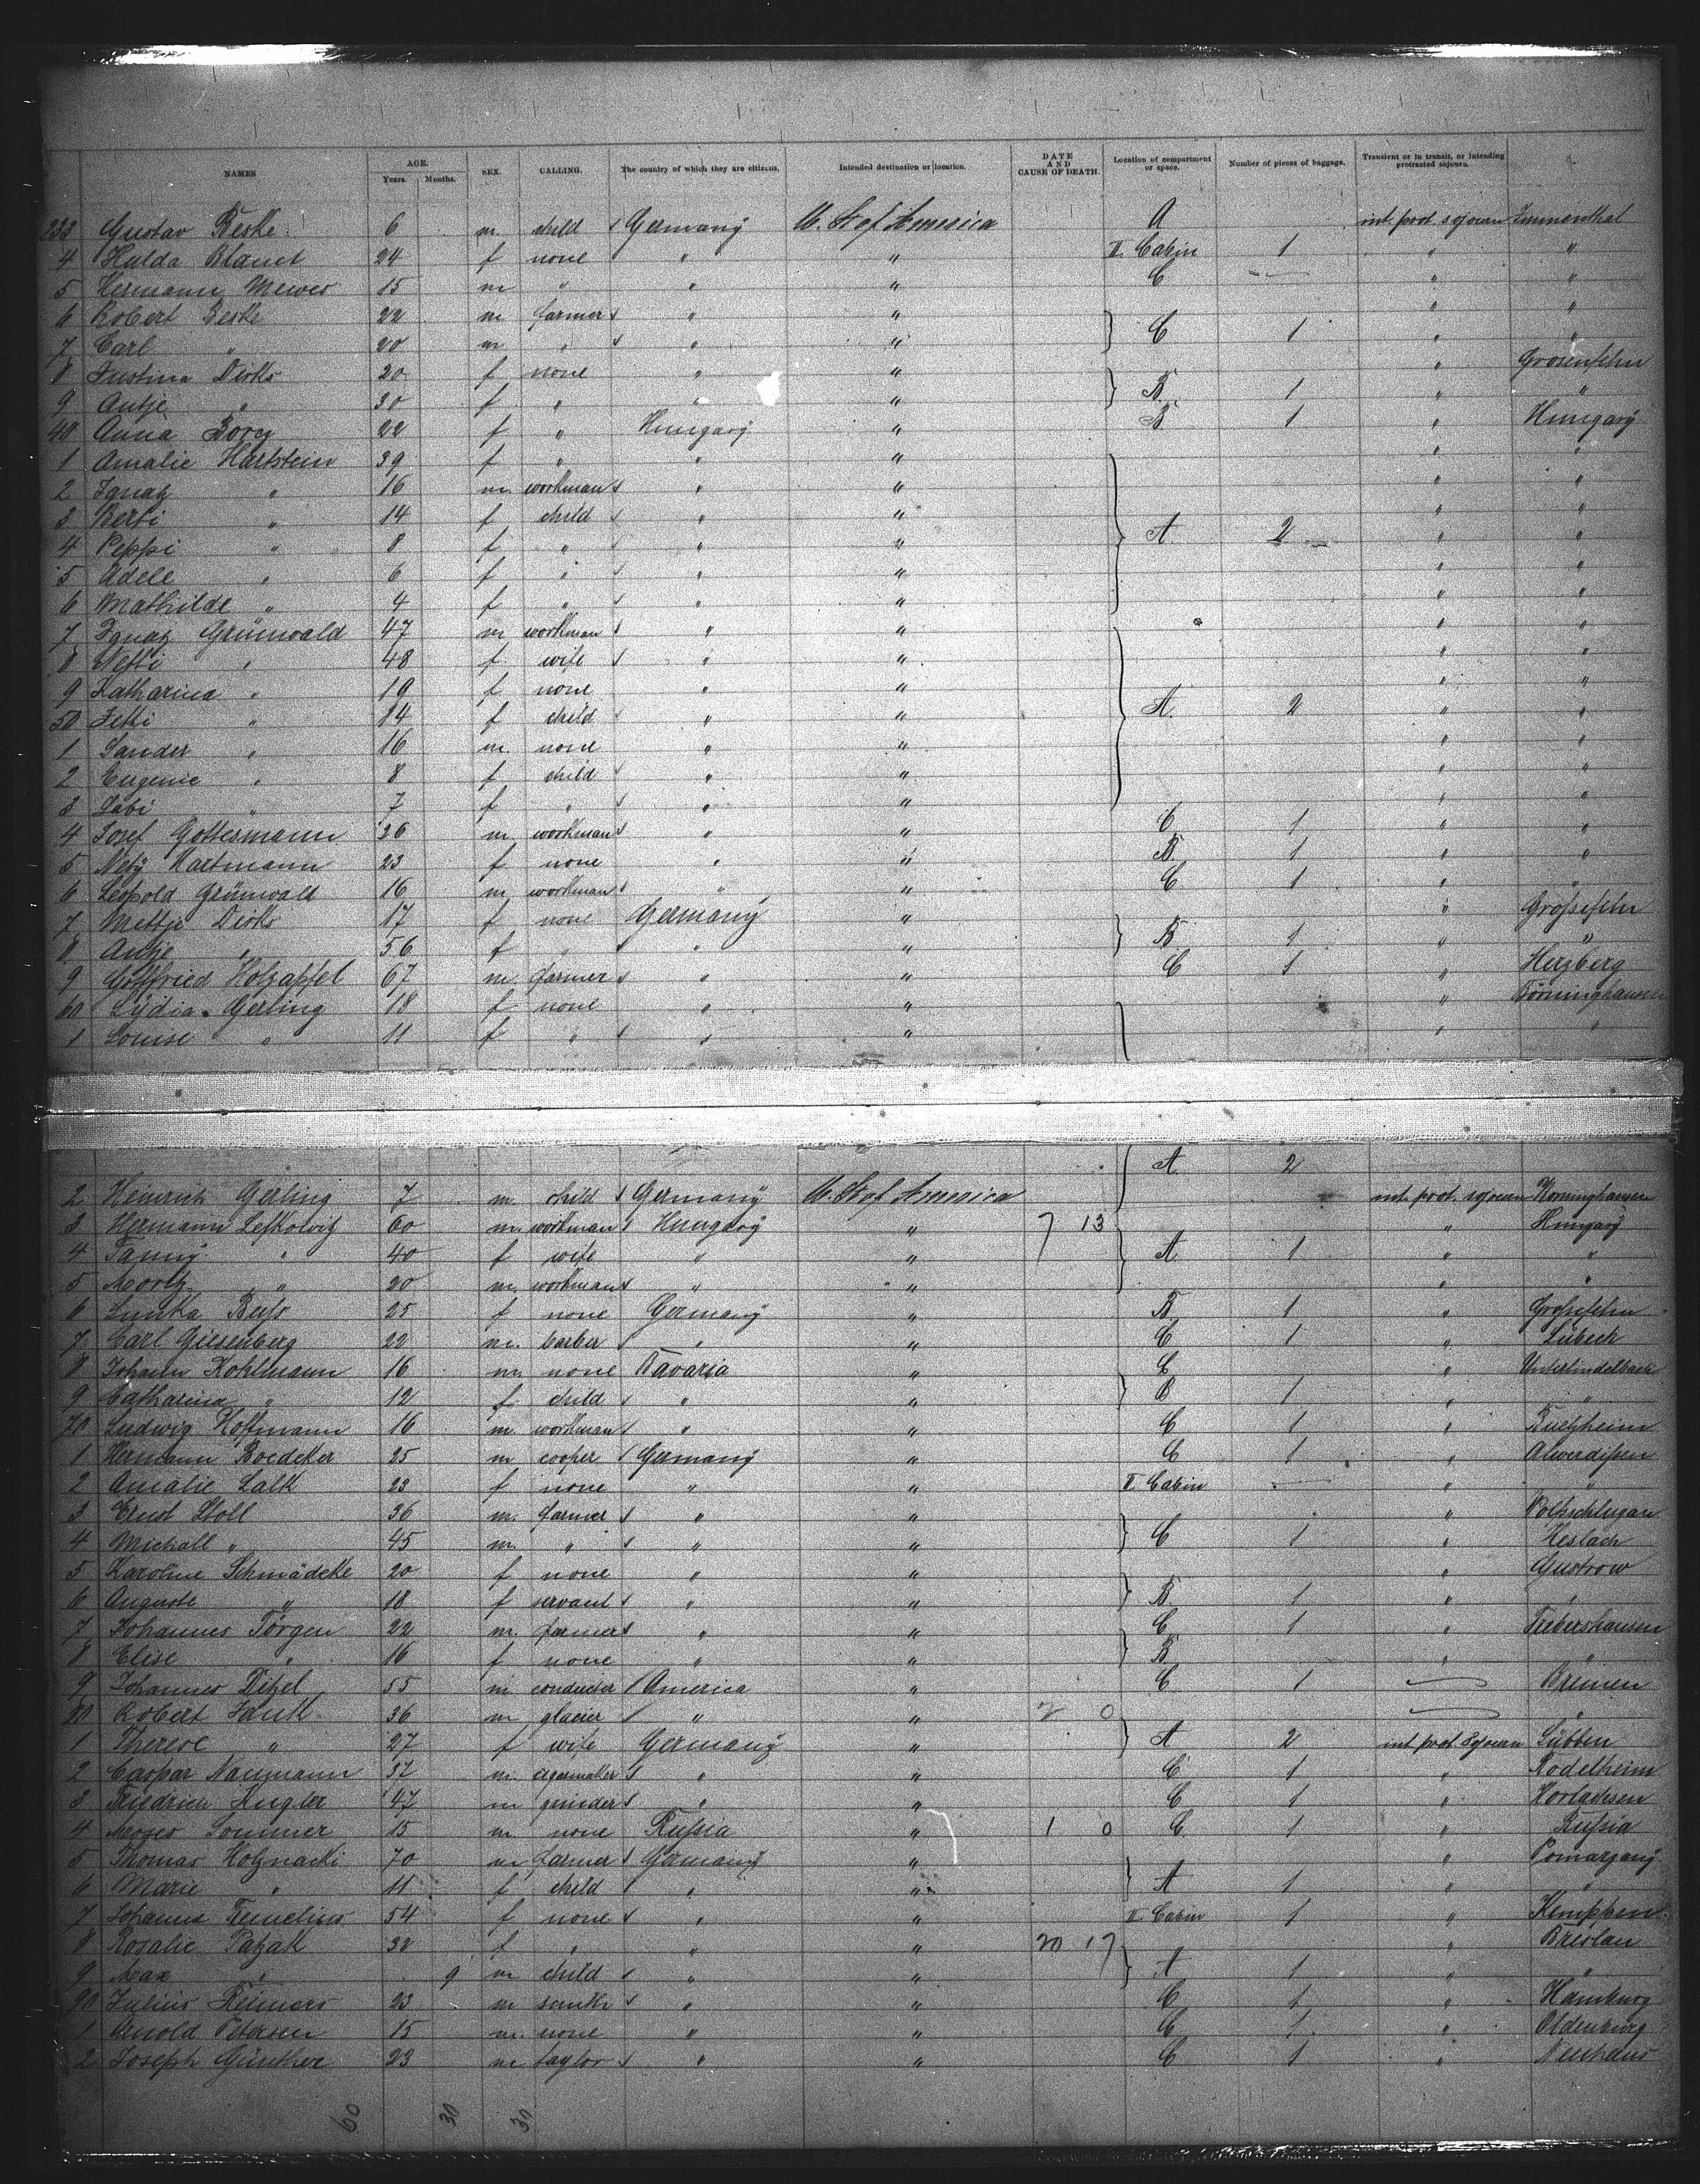 NAMES AGE. Years. Months. SEX. CALLING. The country of which they are citizens. Intended destination or location. DATE AND CAUSE OF DEATH. Location of compartment or space. Number of pieces of baggage. Transient or in transit, or intending protracted sojourn.
233 Gustav Beske 6 m. child Germany U. St of America A int. prot. sojourn Immenthal
4 Hulda Blanct 24 f none " " II Cabin 1 " "
5 Hermann Mewes 15 m " " " C " "
6 Robert Beske 22 m farmer " " " "
7 Carl " 20 m " " " C 1 " "
8 Justina Dirks 20 f none " " "
9 Antje " 30 f " " " B 1 " "
40 Anna Bory 22 f " Hungary " B 1 " Hungary
1 Amalie Hartstein 39 f " " " " "
2 Ignatz " 16 m. workman " " " "
3 Berti " 14 f child " " " "
4 Peppi " 8 f " " " A 2 " "
5 Adele " 6 f " " " " "
6 Mathilde " 4 f " " " " "
7 Ignatz Grünwald 47 m workman " " " "
8 Netti " 48 f wife " " " "
9 Katharina " 19 f none " " " "
50 Jetti " 14 f child " " A 2 " "
1 Sander " 16 m. none " " " "
2 Eugenie " 8 f child " " " "
3 Sabi " 7 f " " " " "
4 Josef Gottesmann 26 m workman " " C 1 " "
5 Nety Hartmann 23 f none " " B 1 " "
6 Leopold Grünwald 16 m workman " " C 1 " "
7 Mettje Dirks 17 f none Germany " " Großefehn
8 Antje " 56 f " " " B 1 " "
9 Gottfried Holzapfel 67 m. farmer " " C 1 " Herzberg
60 Lydia Gerling 18 f none " " " Börninghausen
1 Louise " 11 f " " " " "
A 2
2 Heinrich Gerling 7 m. child Germany U. St of America int. prot. sojourn
3 Hermann Lefkowitz 60 m. workman Hungary " 7 13 " Hungary
4 Fanny " 40 f wife " " A 1 " "
5 Moritz " 20 m. workman " " " "
6 25 f none Germany " B 1 " Großefehn
7 Carl Giesenberg 22 m. barber " " C 1 " Lübeck
8 Johann Kohlmann 16 m none Bavaria " C " Unterlindelbach
9 Catharina " 12 f child " " B 1 " "
70 Ludwig Hoffmann 16 m. workman " " C 1 "
1 Hermann Boedeker 25 m cooper Germany " C 1 " Alverdißen
2 Amalie Lalk 23 f none " " II Cabin " "
3 Ernst Stoll 36 m. farmer " " "
4 Michall " 45 m. " " " C 1 " Heslach
5 Karoline Schmädeke 20 f none " " " Gustrow
6 Auguste " 18 f servant " " B 1 " "
7 Johannes Törgen 22 m. farmer " " C 1 "
8 Elise " 16 f none " " B " "
9 Johannes Ditzel 55 m conductor America " C 1 Bremen
80 Robert Jank 36 m glacier " " 2 0 "
1 Therese " 27 f wife Germany " A 2 int. prot. Sojourn Lübben
2 Caspar Naumann 37 m. cigarmaker " " C 1 " Rodelheim
3 Friedrich Kugler 47 m grinder " " C 1 "
4 Moses Sommer 15 m none Rußia " 1 0 C 1 " Rußia
5 Thomas Holznacki 70 m farmer Germany " "
6 Marie " 11 f child " " A 1 " "
7 Johanna 54 f none " " II Cabin 1 " Kemppen
8 Rosalie Patzak 32 f " " " 20 17 " Breslau
9 Max " 9 m child " " A 1 " "
90 Julius Reimers 23 m smith " " C 1 " Hamburg
1 Arnold Petersen 15 m. none " " C 1 " Oldenburg
2 Joseph Günther 23 m taylor " " C 1 " Neuhaus
60 30 30